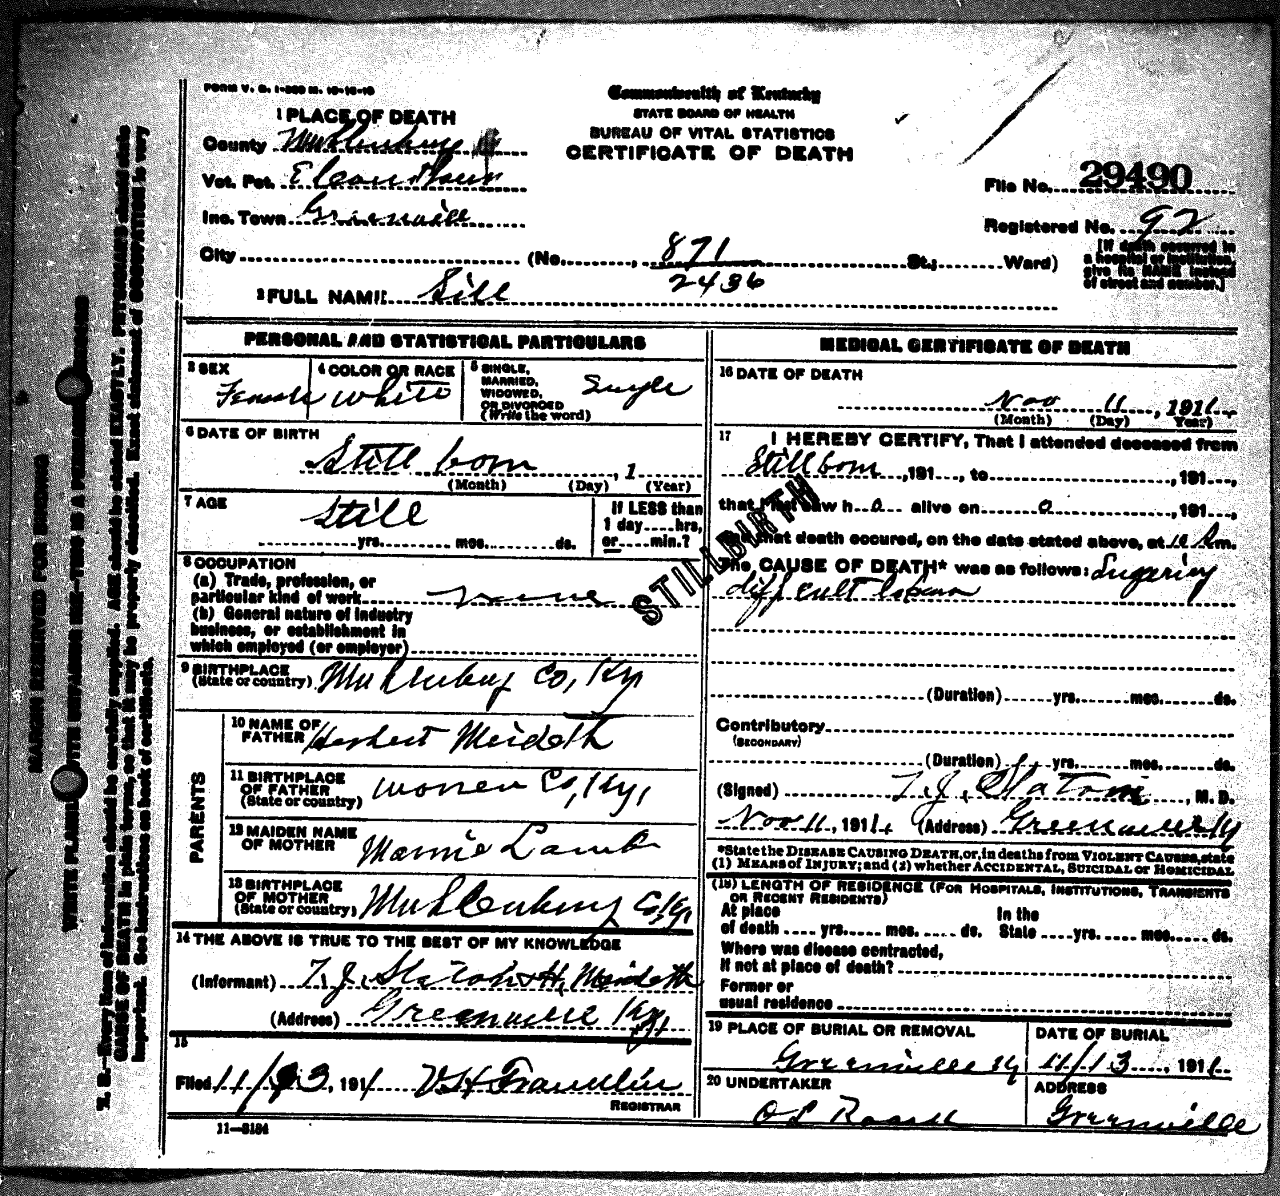 FORM V. S. 1-
Commonwealth of Kentucky
STATE BOARD OF HEALTH
BUREAU OF VITAL STATISTICS
CERTIFICATE OF DEATH
1 PLACE OF DEATH
County Muhlenburg
Vot. Pct.
Inc. Town Greenville
City (No. , 871 St.; Ward)
2436
File No. 29490
Registered No. 92
[If death occurred in
a hospital or institution,
give its NAME instead
of street and number.]
2 FULL NAME Still
PERSONAL AND STATISTICAL PARTICULARS
3 SEX
Female
4 COLOR OR RACE
White
5 SINGLE,
MARRIED,
WIDOWED,
OR DIVORCED
(Write the word)
Single
6 DATE OF BIRTH
Still born , 1
(Month) (Day) (Year)
7 AGE
Still
yrs. mos. ds.
If LESS than
1 day hrs,
or min.?
8 OCCUPATION
(a) Trade, profession, or
particular kind of work
(b) General nature of industry
business, or establishment in
which employed (or employer)
9 BIRTHPLACE
(State or country) Muhlenburg Co, Ky
PARENTS
10 NAME OF
FATHER Herbert Merideth
11 BIRTHPLACE
OF FATHER
(State or country) Warren Co, Ky,
12 MAIDEN NAME
OF MOTHER Mamie Lamb
13 BIRTHPLACE
OF MOTHER
(State or country) Muhlenburg Co, Ky,
14 THE ABOVE IS TRUE TO THE BEST OF MY KNOWLEDGE
(Informant) T. J. Slaton & H. Merideth
(Address) Greenville Ky,
15
Filed 11/ 3, 1911 REGISTRAR
11—5184
STILLBIRTH
MEDICAL CERTIFICATE OF DEATH
16 DATE OF DEATH
Nov 11, 1911
(Month) (Day) (Year)
17 I HEREBY CERTIFY, That I attended deceased from
Still born, 191 , to , 191 ,
that I last saw h o alive on o , 191 ,
and that death occured, on the date stated above, at 10 A m.
The CAUSE OF DEATH* was as follows:
difficult labour
(Duration) yrs. mos. ds.
Contributory
(SECONDARY)
(Duration) yrs. mos. ds.
(Signed) T. J. Slaton, M. D.
Nov 11, 1911 (Address) Greenville Ky
*State the DISEASE CAUSING DEATH, or, in deaths from VIOLENT CAUSES, state
(1) MEANS of INJURY; and (2) whether ACCIDENTAL, SUICIDAL or HOMICIDAL
(18) LENGTH OF RESIDENCE (FOR HOSPITALS, INSTITUTIONS, TRANSIENTS
OR RECENT RESIDENTS)
At place
of death yrs. mos. ds.
In the
State yrs. mos. ds.
Where was disease contracted,
If not at place of death?
Former or
usual residence
19 PLACE OF BURIAL OR REMOVAL
Greenville Ky
DATE OF BURIAL
11/13, 1911
20 UNDERTAKER
ADDRESS
Greenville
MARGIN RESERVED FOR BINDING
N. B.—Every item of information should be carefully supplied. AGE should be stated EXACTLY. PHYSICIANS should state
CAUSE OF DEATH in plain terms, so that it may be properly classified. Exact statement of OCCUPATION is very
important. See instructions on back of certificate.